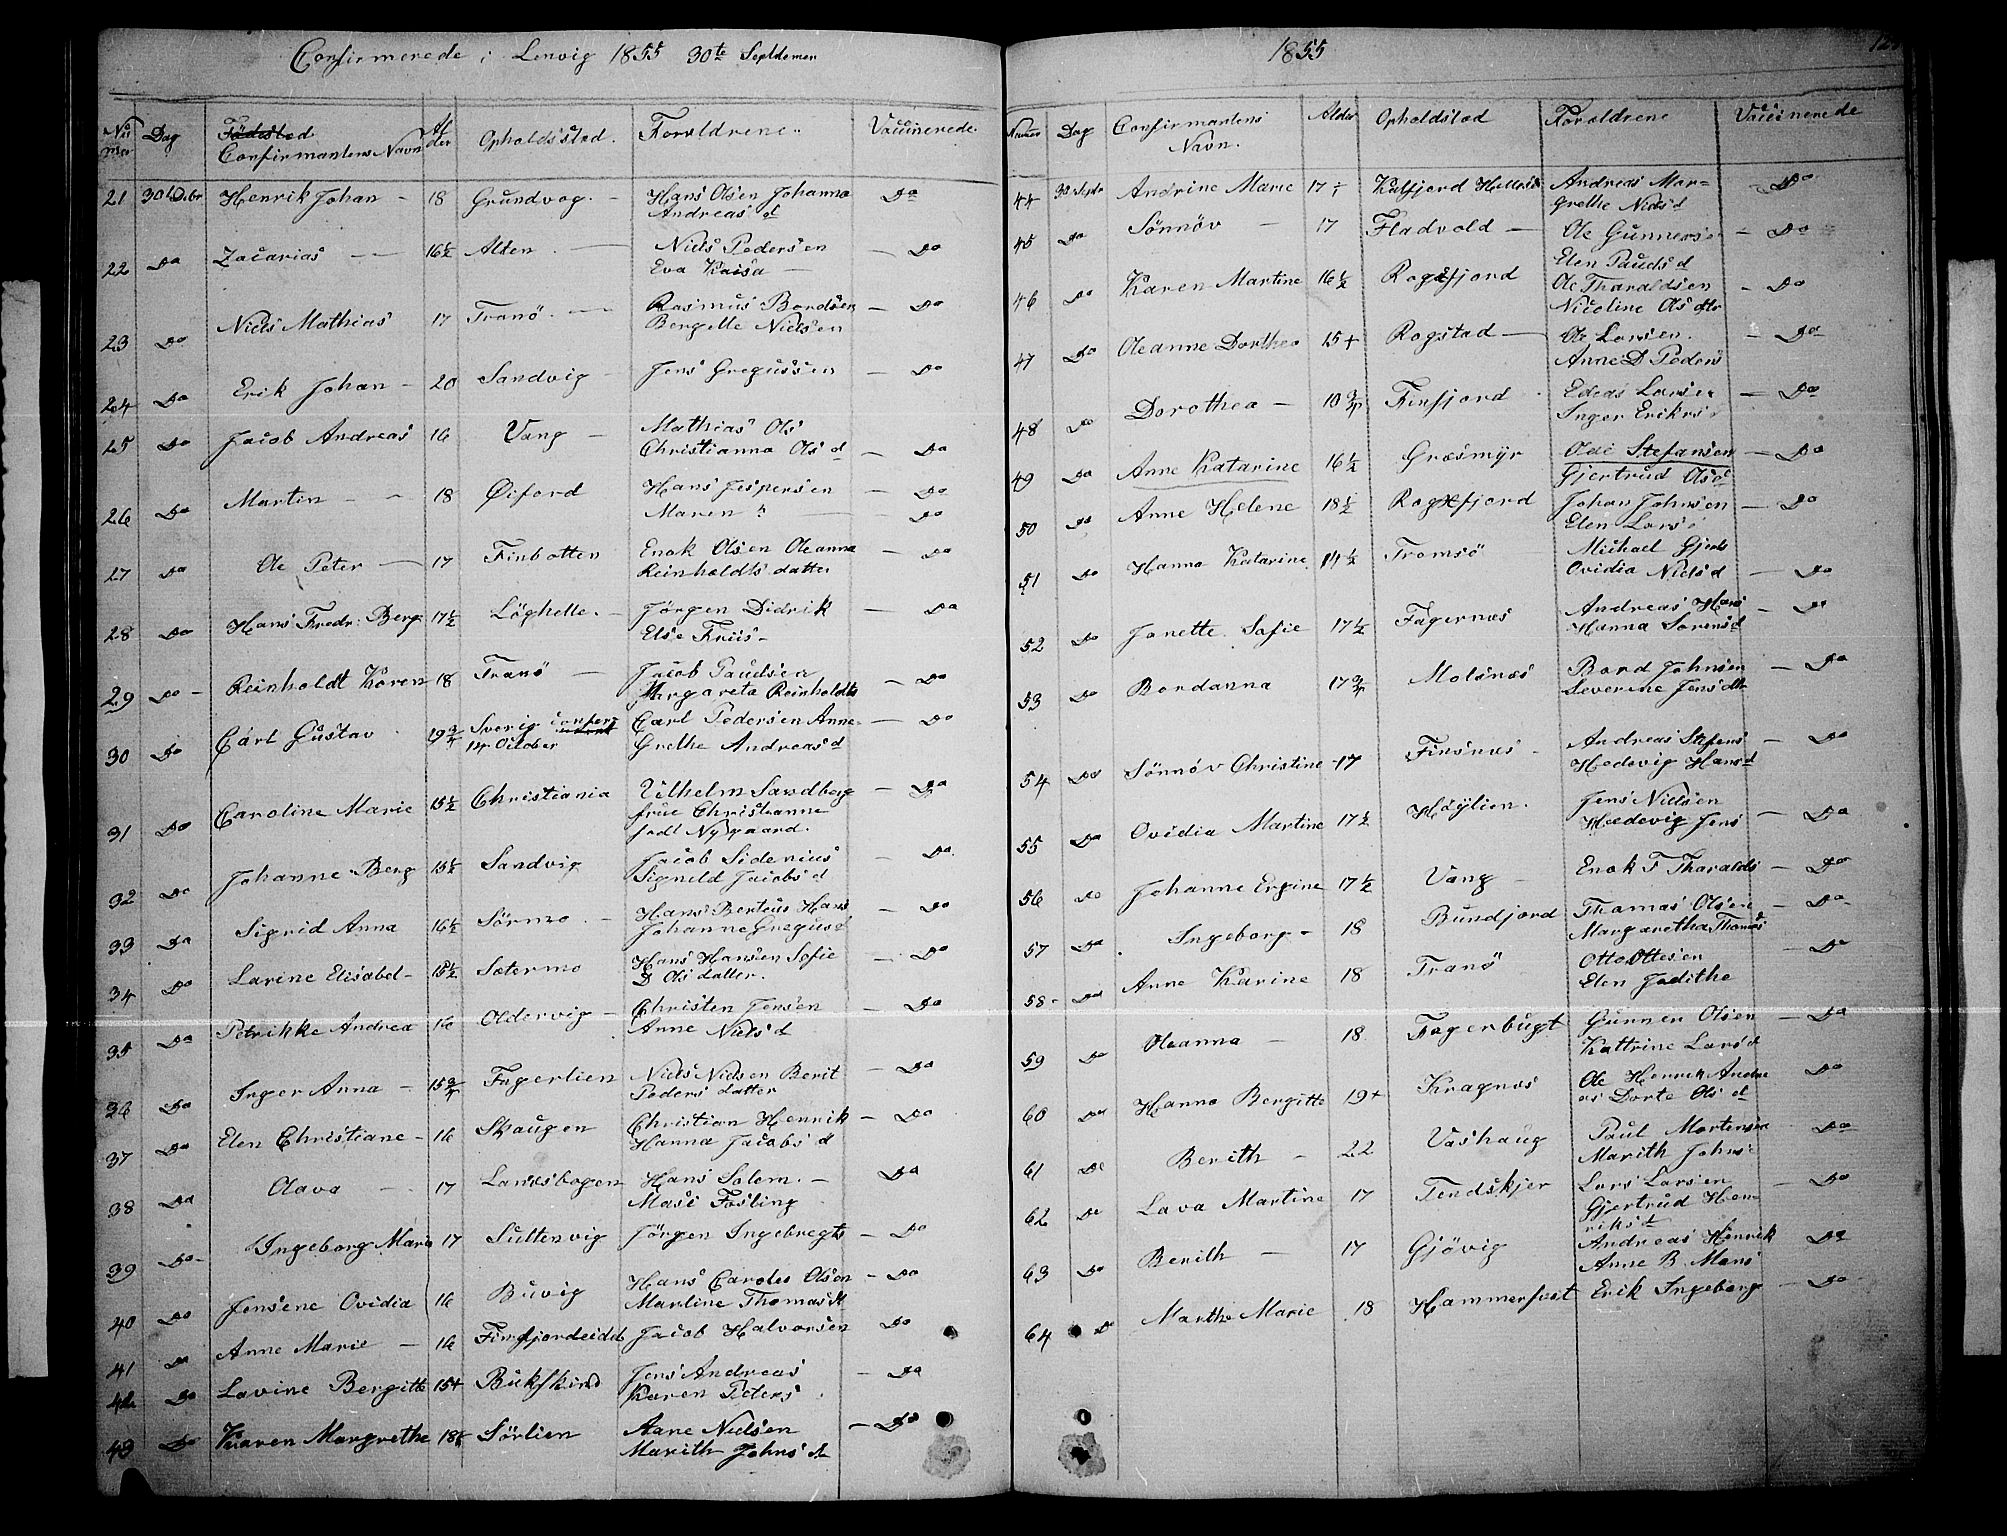 Confirmerede i Lenvig 1855 30te Septdemer
No mer Dag Födested Confirmantens Navn Al der Opholdsstad. Forældrene. Vaccinerede
21 30t Henrik Johan - 18 Grundvog. - Hans Olsen Johanna Do
Andreas d
22 Do Zacarias - - 16½ Alten. - Niels Pedersen - Do
Eva Kaisa -
23 Do Niels Mathias 17 Tranö. - Rasmus Bordsen - Do
Bergette Nielsen
24 Do Erik Johan - 20 Sandvig - Jens Gregussen - Do
25 Do Jacob Andreas 16 Vang - Mathias Ols
Christianna Ols d - Do
26 Do Martin - - 18 Øiford Hans Jespersen - Do
Maren - Do
27 Do Ole Peter - 17 Finbotten Enok Olsen Oleanna - Do
Reinholdts datter
28 Do Hans Fredr: Berg 17½ Löghelle. - Jörgen Didrik - Do
Else Friis -
29 Do - Reinholdt Kören 18 Tranö - Jacob Paulsen
Margareta Reinholdts - Do
30 Do Carl Gustav 19¾ Sverig Carl Pedersen Anne - Do
14 October Grethe Andreas d
31 Do Caroline Marie 15½ Christiania Vilhelm Sandberg - Do
frue Christianne
fodt Nygaard.
32 Do Johanne Berg 15½ Sandvig Jacob Sidenius - Do
Signeld Jacobs d
33 Do Sigrid Anna 16½ Sörmo - Hans Berteus Hans - Do
Johanne Gregus d
34 Do Larine Elisabet - 15½ Sætermo Hans Hansen Sofie - Do
D Ols datter.
35 Do Petrikke Andrea 16 Oldervig - Christen Jensen - Do
Anne Niels d
36 Do Inger Anna - 15¾ Fagerlien Niels Nielsen Berit - Do
Peders datter
37 Do Elen Christiane - 16 Skaugen Christian Henrik - Do
Hanna Jacobs d
38 Do Olava - 17 Lansbogen Hans Salem. - Do
Masi Fosling
39 Do - Ingeborg Marie 17 Sultenvig Jörgen Ingebregts - Do
40 Do Jensene Ovidia 16 Buvig Hans Carolus Olsen - Do
Martine Thomas d
41 Do Anne Marie - 16 Finfjordeidet Jacob Halvorsen Do
42 Do Lavine Bergitte 15+ Bukskind Jens Andreas - Do
Karen Peters
43 Do Karen Margrethe 18½ Sörlien Aane Nielsen - Do
Marith Johns d
1855
Numer Dag Confirmantens Navn. Alder Opholdstad Forældrene Vaccinerede
44 30 Septr Andrine Marie 17 Kalfjord Andreas Mar= - Do
grethe Niels d
45 Do Sönnöv - 17 Fladvold - Ole Gunners - Do
Elen Pauls d
46 Do Karen Martine 16½ Rogsfjord Ole Tharaldsen - Do
Nicoline Ols dtr
47 Do Oleanne Dorthea 15+ Rogstad - Ole Larsen. - Do
Anne D Peders
48 Do Dorothea - Finfjord Larsen - Do
Inger Eriks
49 Do Anne Katarine 16½ Græsmyr Ole Stefansen - Do
Gjertrud Ols d
50 Do Anne Helene 18½ Rogsfjord Johan Johnsen - Do
Elen Lars
51 Do Hanna Katarine 14½ Tromsö Michael Gjerts
Ovidia Niels d - Do
52 Do Janette Sofie 17½ Fagernæs Andreas Hans - Do
Hanna Sörens d
53 Do Bordanna 17¾ Molsnæs Bord Johnsen - Do
Severine Jens dtr
54 Do Sönnöv Christine 17 Finsnæs - Andreas Stefens - Do
Hedevig Hans d
55 Do Ovidia Martine 17½ Höylien. Jens Nielsen
Hædevig Jens - Do
56 Do Johanne Ergine 17½ Vang - Enok T Tharalds - Do
57 Do Ingeborg - 18 Bundjord Thomas Olsen - Do
Margaretha Thomas
58 - Do Anne Karine 18 Tranö Otto Ottesen - Do
Elen Judithe
59 Do Oleanna - 18 Fagerbugt Gunner Olsen - Do
Kattrine Lars d
60 Do Hanna Bergitte 19+ Kragnæs Ole Henrik Andre Do
as Dorte Ols d
61 Do Berith - 22 Vashaug Paul Mortensen Do
Marith Johns
62 Do Lava Martine 17 Tendskjer Lars Larsen - Do
Gjertrud Hen=
riks d
63 Do Berith - 17 Gjövig Andreas Henrik Do
Anne B. Mons
64 D Marthe Marie 18 Hammerfest Erik Ingeborg - Do